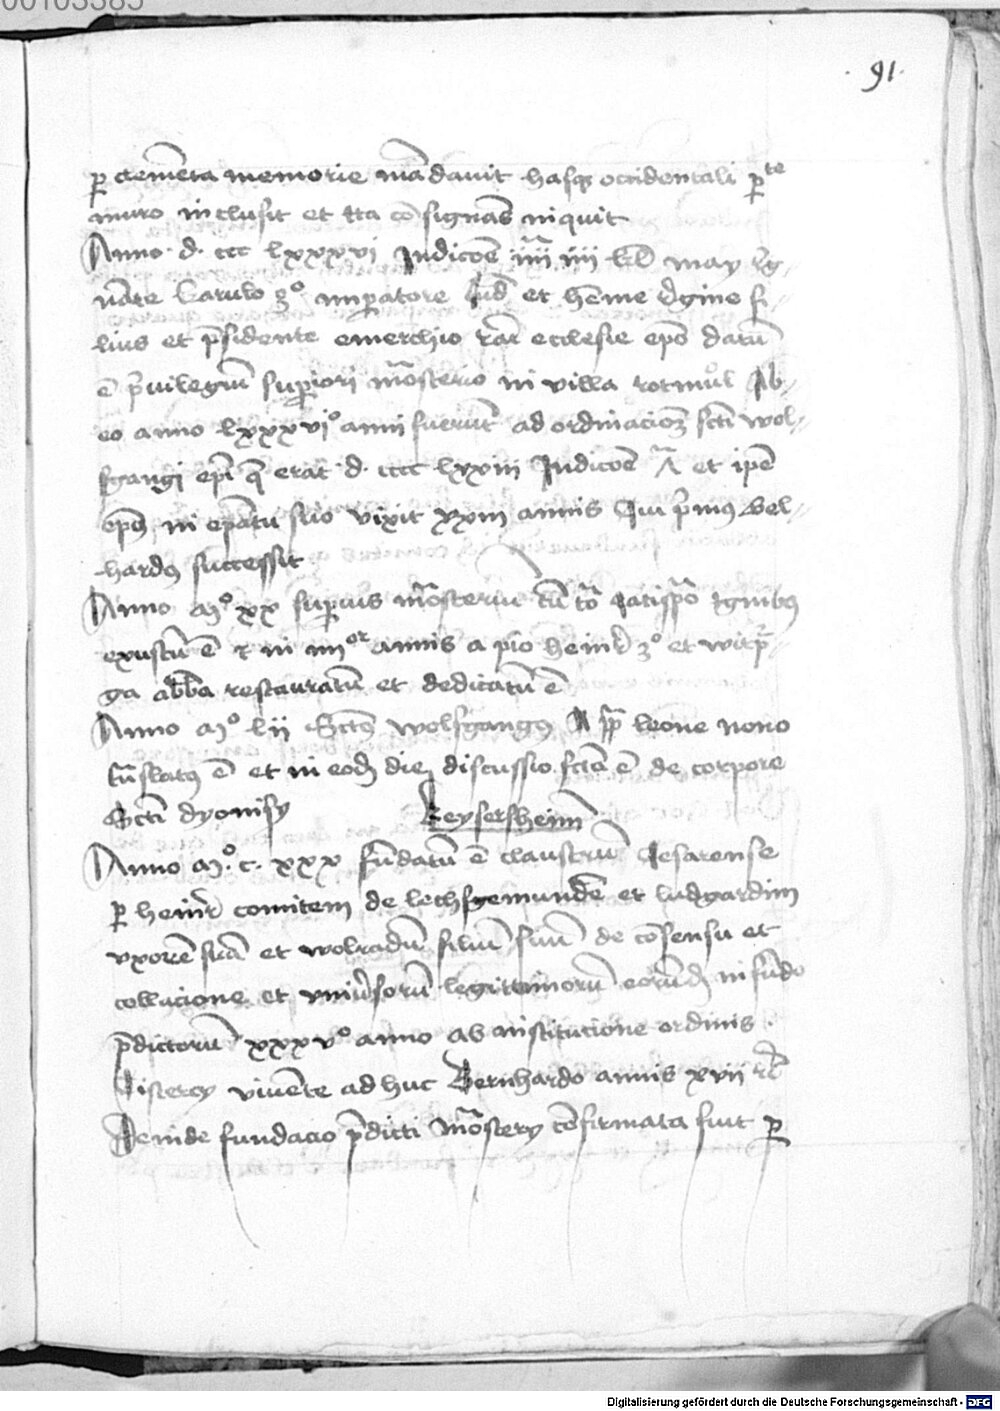 00103385
. 91 .
p clemēta memorie mādauit hasq̢ occidentali pte
muro inclusit et ita cōsignās inquit
Anno . d. ccc lxxxvi Indicōe iiii iiii kł may rg-
nāte karulo 3º impatore lud et hēme rgine fi-
lius et psidente emerchio rat ecclesie epō datū
ē puilegiū supiori mōsterio in villa rotmul Ab-
eo anno lxxxviº anni fuerūt ad ordinacioē scti wol-
fgangi epī q̄ erat d. cccc lxxiii Indicōe et ipē
epus in epatu suo vixit xxiii annis Qui pmus bel-
hardus successit
Anno mº xx supius mōsteriu cū Ratispō Ignibus
exustū ē in iiiior annis a pio heinr 3º et witp-
ga abba restauratū et dedicatū ē
Anno mº lii Sctus wolfgangus A pp leone nono
tūslatus ē et in eod die discussio fcta ē de corpore
Scti dyonisy Keysersheim
Anno mº. c. xxx fūdatū ē claustrū Cesarense
p heinr comitem de lechsgemundē et ludgardim
vxorē suā et wolradū filiū suū de cōsensu et
collacione et vniuersorū legittimorū eorūd in fūdo
pdictorū xxxvº anno ab institucione ordinis
Cistercy viuēte ad huc Bernhardo annis xvii
Deinde fundacio pdicti mōstery cōfirmata fuit p
Digitalisierung gefördert durch die Deutsche Forschungsgemeinschaft - DFG